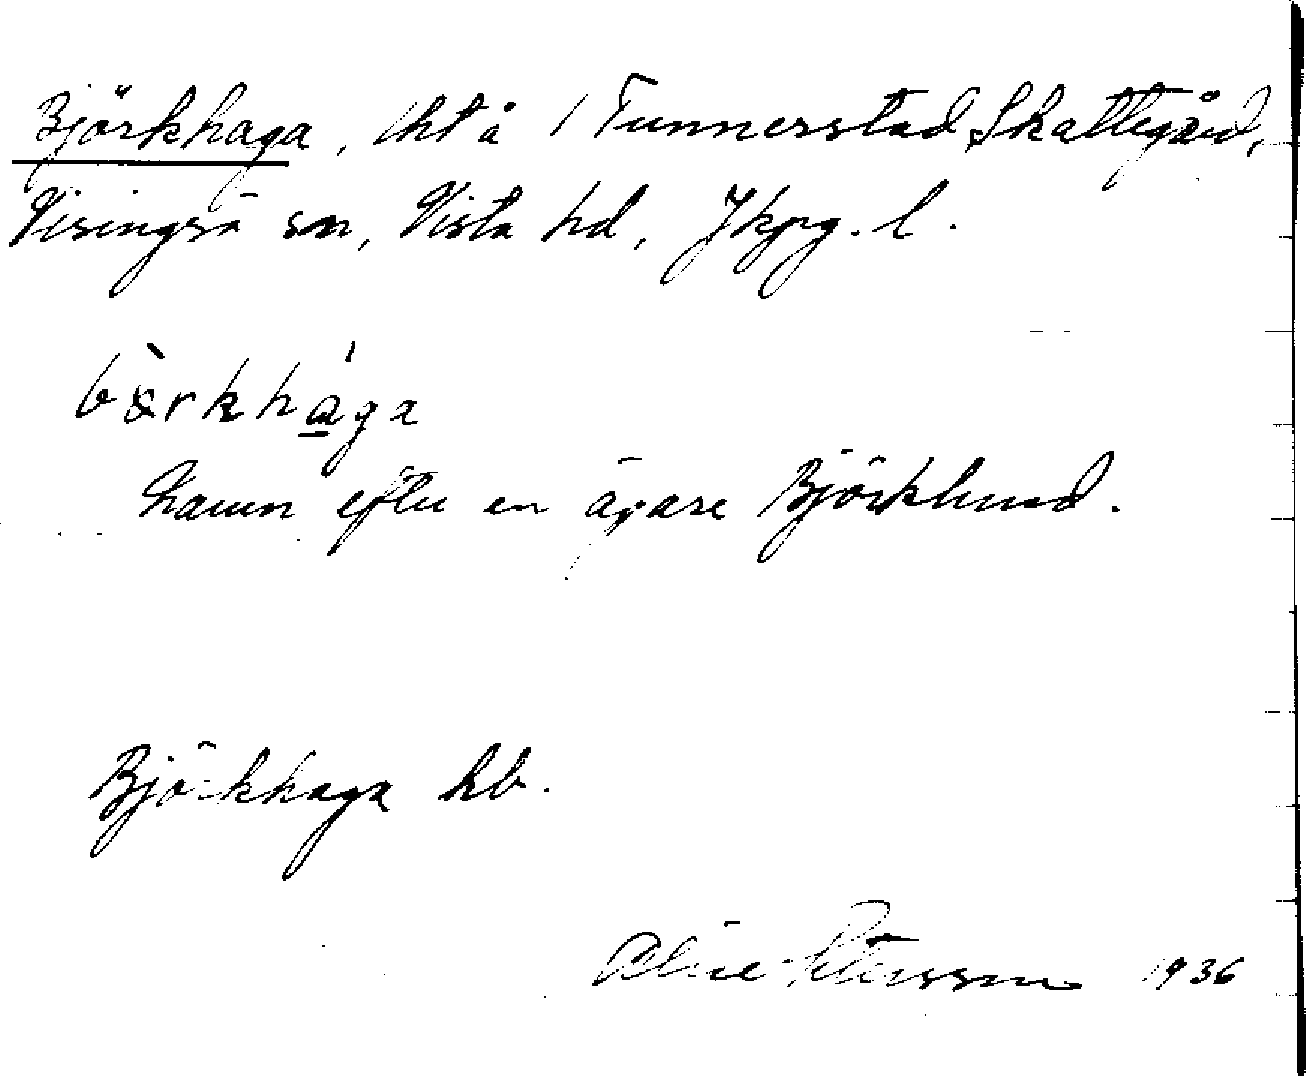 Björkhaga, lht å 1 Tunnerstad Skattegård,
Visingsö sn, Vista hd, Jkpg. l.
bärkhága
namn efter en ägare Björklund.
Björkhaga hb.
Aline Petersson 1936